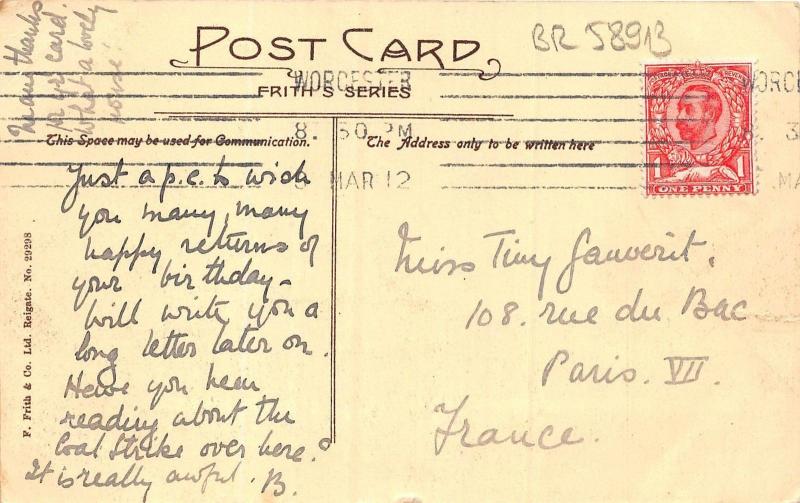 Many thanks
for yr card.
What a lovely
house!
BR 58913
POST CARD
FRITH'S SERIES
WORCESTER
8. 30 PM
MAR 12
WORC
8. 3
MA
ONE PENNY
1 1
This Space may be used for Communication.
The Address only to be written here
Just a p.c. to wish
you many, many
happy returns of
your birthday –
Will write you a
long letter later on.
Have you been
reading about the
Coal Strike over here?
It is really awful. B.
Miss Tiny Gauverit.
108. rue du Bac
Paris. VII.
France.
F. Frith & Co. Ltd. Reigate. No. 29298